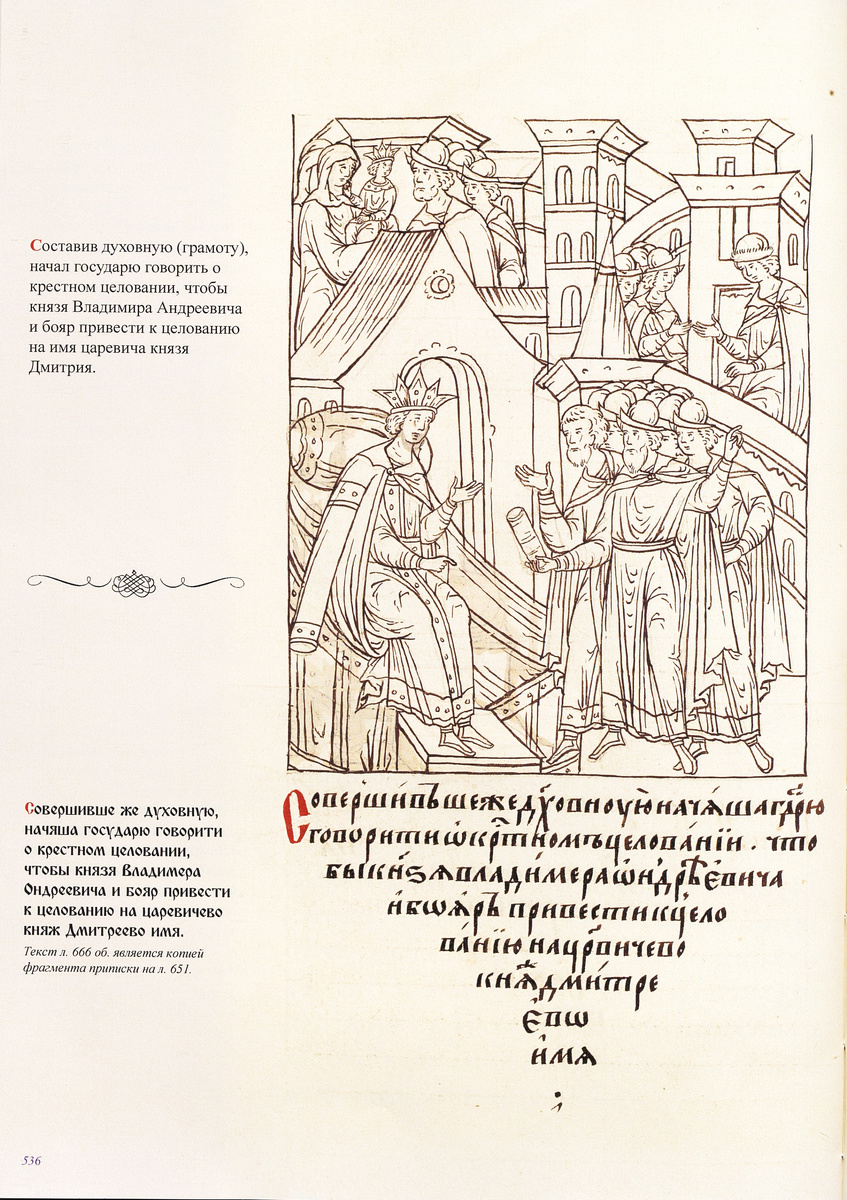 Составив духовную (грамоту),
начал государю говорить о
крестном целовании, чтобы
князя Владимира Андреевича
и бояр привести к целованию
на имя царевича князя
Дмитрия.
Совершивше же духовную,
начяша государю говорити
о крестном целовании,
чтобы князя Владимера
Ондреевича и бояр привести
к целованию на царевичево
княж Дмитреево имя.
Текст л. 666 об. является копией
фрагмента приписки на л. 651.
Совершивъшежедꙋховноую҆начѧ́шагдⷭ҇рю
говоритиѡ҆крⷭ҇тномъцелова́нїи . что
быкнѧ́ѕѧвлади́мераѡ҆ндрѣ́евича
и҆боѧ́ръпривестикцело
ва́нїюнацр҃вичево
кнѧ҆ждми́тре
евѡ
и҆мѧ
536